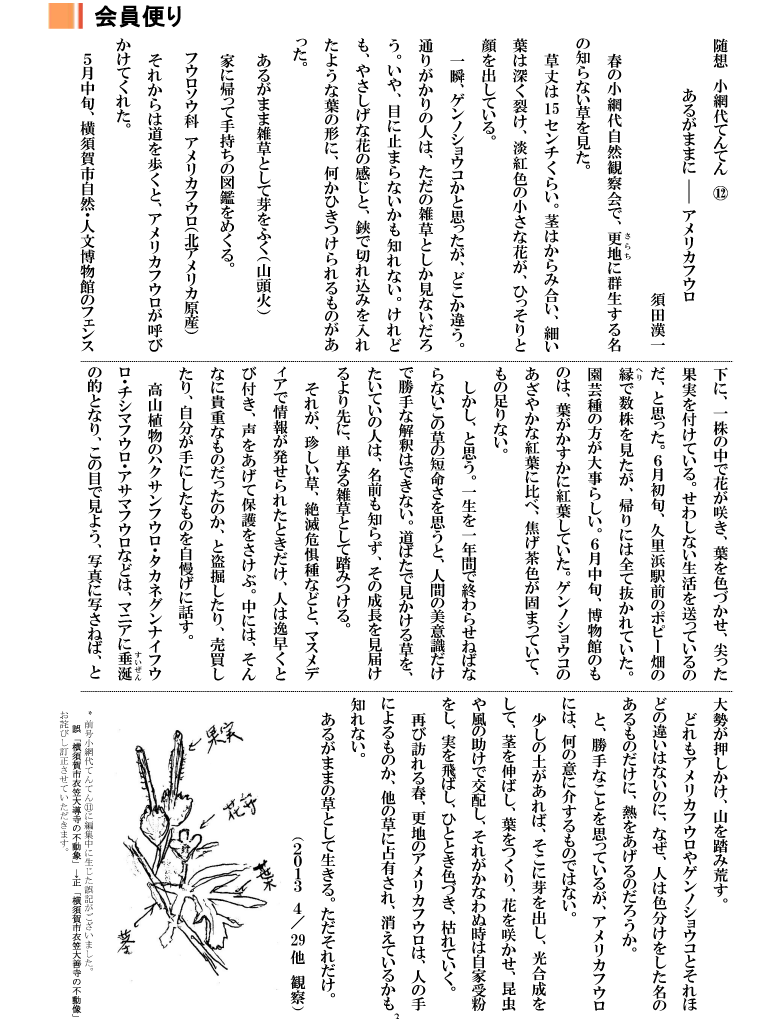 会員便り
随想　小網代てんてん　⑫
あるがままに ―― アメリカフウロ
須田漢一
春の小網代自然観察会で、更地に群生する名
さらち
の知らない草を見た。
草丈は15センチくらい。茎はからみ合い、細い
葉は深く裂け、淡紅色の小さな花が、ひっそりと
顔を出している。
一瞬、ゲンノショウコかと思ったが、どこか違う。
通りがかりの人は、ただの雑草としか見ないだろ
う。いや、目に止まらないかも知れない。けれど
も、やさしげな花の感じと、鋏で切れ込みを入れ
たような葉の形に、何かひきつけられるものがあ
った。
あるがまま雑草として芽をふく（山頭火）
家に帰って手持ちの図鑑をめくる。
フウロソウ科　アメリカフウロ（北アメリカ原産）
それからは道を歩くと、アメリカフウロが呼び
かけてくれた。
5月中旬、横須賀市自然・人文博物館のフェンス
下に、一株の中で花が咲き、葉を色づかせ、尖った
果実を付けている。せわしない生活を送っているの
だ、と思った。6月初旬、久里浜駅前のポピー畑の
縁で数株を見たが、帰りには全て抜かれていた。
へり
園芸種の方が大事らしい。6月中旬、博物館のも
のは、葉がかすかに紅葉していた。ゲンノショウコの
あざやかな紅葉に比べ、焦げ茶色が固まっていて、
もの足りない。
しかし、と思う。一生を一年間で終わらせねばな
らないこの草の短命さを思うと、人間の美意識だけ
で勝手な解釈はできない。道ばたで見かける草を、
たいていの人は、名前も知らず、その成長を見届け
るより先に、単なる雑草として踏みつける。
それが、珍しい草、絶滅危惧種などと、マスメデ
ィアで情報が発せられたときだけ、人は逸早くと
び付き、声をあげて保護をさけぶ。中には、そん
なに貴重なものだったのか、と盗掘したり、売買し
たり、自分が手にしたものを自慢げに話す。
高山植物のハクサンフウロ・タカネグンナイフウ
ロ・チシマフウロ・アサマフウロなどは、マニアに垂涎
すいぜん
の的となり、この目で見よう、写真に写さねば、と
大勢が押しかけ、山を踏み荒す。
どれもアメリカフウロやゲンノショウコとそれほ
どの違いはないのに、なぜ、人は色分けをした名の
あるものだけに、熱をあげるのだろうか。
と、勝手なことを思っているが、アメリカフウロ
には、何の意に介するものではない。
少しの土があれば、そこに芽を出し、光合成を
して、茎を伸ばし、葉をつくり、花を咲かせ、昆虫
や風の助けで交配し、それがかなわぬ時は自家受粉
をし、実を飛ばし、ひととき色づき、枯れていく。
再び訪れる春、更地のアメリカフウロは、人の手
によるものか、他の草に占有され、消えているかも
知れない。
あるがままの草として生きる。ただそれだけ。
（2013　4／29他　観察）
果実
花芽
葉
茎
*　前号小網代てんてん⑪に編集中に生じた誤記がございました。
誤「横須賀市衣笠大導寺の不動象」→正「横須賀市衣笠大善寺の不動像」
お詫びし訂正させていただきます。
3